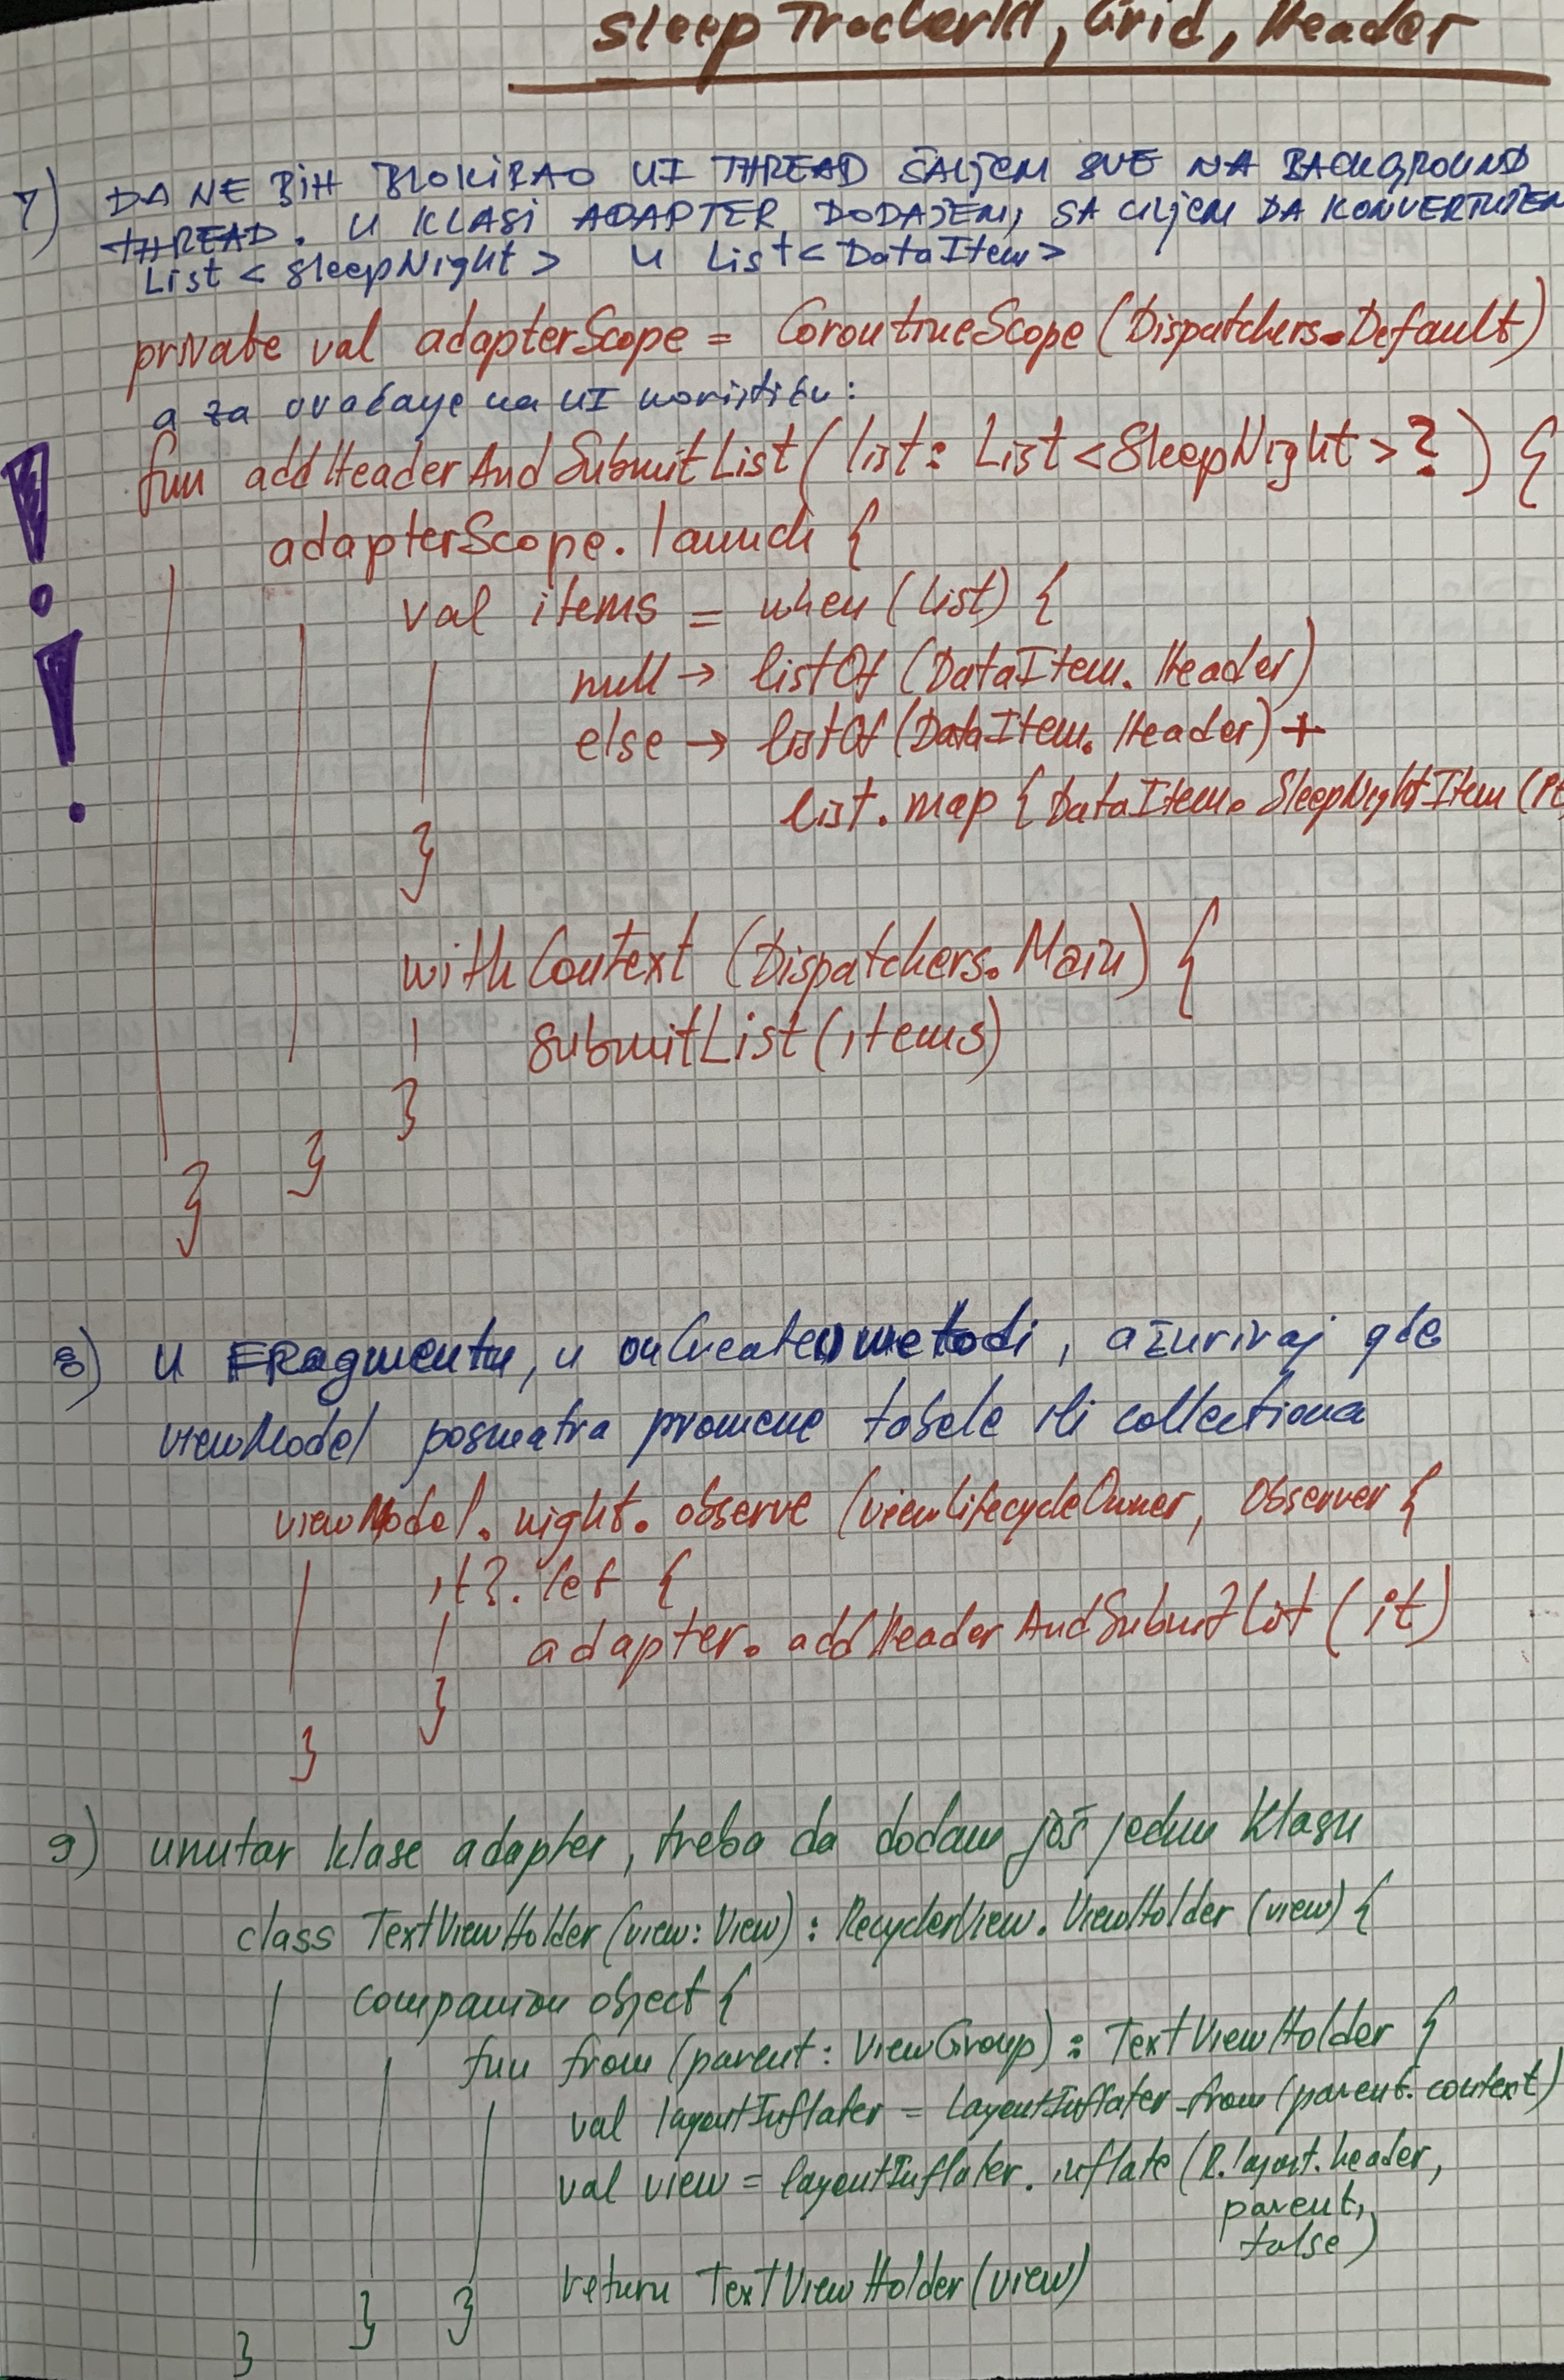 SleepTracker, Grid, Header
7) DA NE BIH BLOKIRAO UI THREAD ŠALJEM SVE NA BACKGROUND
THREAD. U KLASI ADAPTER DODAJEM, SA CILJEM DA KONVERTUJEM
List<SleepNight> u List<DataItem>
private val adapterScope = CoroutineScope(Dispatchers.Default)
a za vraćanje na UI koristiću:
fun addHeaderAndSubmitList(list: List<SleepNight>?) {
adapterScope.launch {
val items = when(list) {
null → listOf(DataItem.Header)
else → listOf(DataItem.Header) +
list.map {DataItem.SleepNightItem(
}
withContext (Dispatchers.Main) {
submitList(items)
}
}
}
8) U FRagmentu, u onCreate() metodi, ažuriraj gde
viewModel posmatra promene tabele ili collectiona
viewModel.night.observe (viewLifecycleOwner, Observer {
it?.let {
adapter.addHeaderAndSubmitList(it)
}
}
9) unutar klase adapter, treba da dodam još jednu klasu
class TextViewHolder(view: View) : RecyclerView.ViewHolder(view) {
companion object {
fun from (parent: ViewGroup): TextViewHolder {
val layoutInflater = LayoutInflater.from(parent.context)
val view = layoutInflater.inflate(R.layout.header,
parent,
false)
return TextViewHolder(view)
} }
}